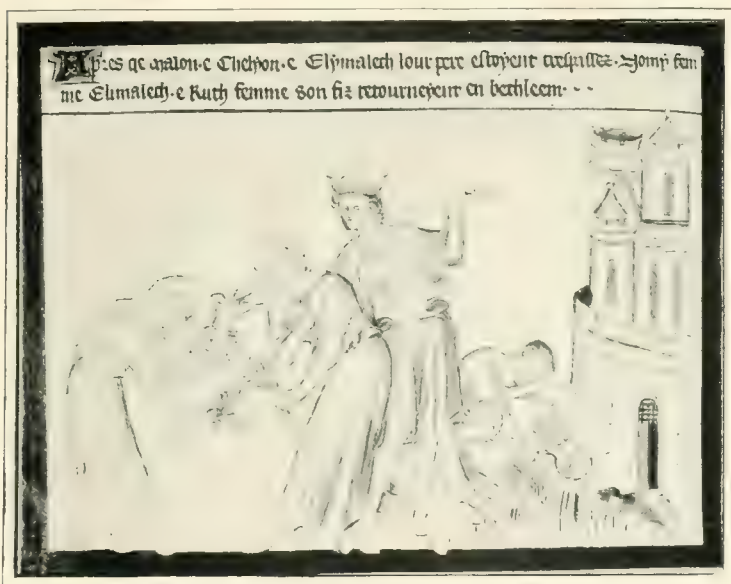 Apres qe malon·e Chelyon·e Elymalech lour pere estoyent trespassez·Nomy fem
me Elimalech·e Ruth femme son fiz retourneyent en bethleem· - -